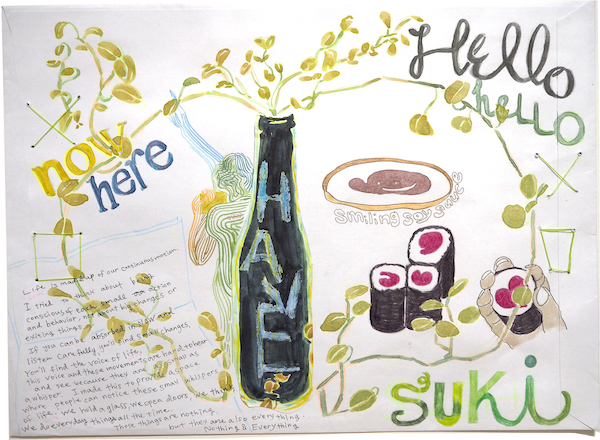 Hello
hello
now
here
HANEL
smiling soy sauce
Life is made up of our continuous motion.
I tried to think about how
conscious of each small our action
and behavior, and about how changes or
exiting things
If you can be absorbed in now and
listen carefully, you find some changes,
You'll find the voice of life.
this voice and these movements are hard to hear
and see because they are small as
a whisper. I made this to provide a space
where people can notice these small whispers
of life. We hold a glass, we open doors, we
We do everyday things all the time.
Those things are nothing.
but they are also everything
Nothing & Everything
suki